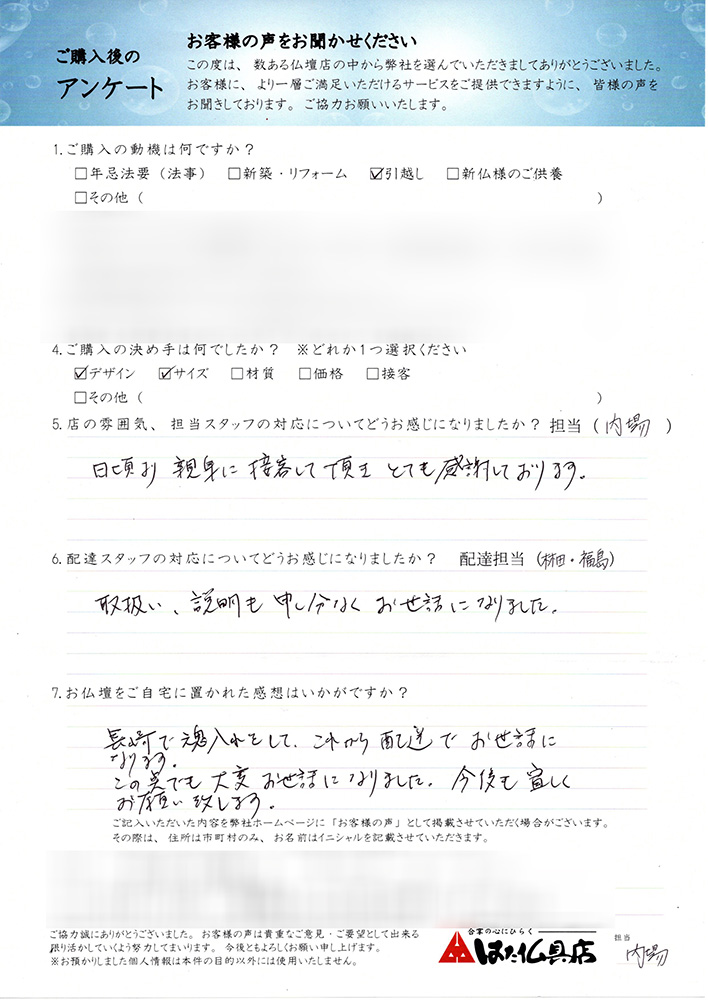 ご購入後の
アンケート
お客様の声をお聞かせください
この度は、数ある仏壇店の中から弊社を選んでいただきましてありがとうございました。
お客様に、より一層ご満足いただけるサービスをご提供できますように、皆様の声を
お聞きしております。ご協力お願いいたします。
1.ご購入の動機は何ですか?
□年忌法要(法事) □新築・リフォーム ☑引越し □新仏様のご供養
□その他( )
4.ご購入の決め手は何でしたか? ※どれか1つ選択ください
☑デザイン ☑サイズ □材質 □価格 □接客
□その他( )
5.店の雰囲気、担当スタッフの対応についてどうお感じになりましたか?担当(内場)
日頃より親身に接客して頂き とても感謝しております。
6.配達スタッフの対応についてどうお感じになりましたか? 配達担当(林田・福島)
取扱い、説明も申し分なくお世話になりました。
7.お仏壇をご自宅に置かれた感想はいかがですか?
長崎で魂入れをして、これから配送でお世話に
なります。
この点でも大変お世話になりました。今後も宜しく
お願い致します。
ご記入いただいた内容を弊社ホームページに「お客様の声」として掲載させていただく場合がございます。
その際は、住所は市町村のみ、お名前はイニシャルを記載させていただきます。
ご協力誠にありがとうございました。お客様の声は貴重なご意見・ご要望として出来る
限り活かしていくよう努力してまいります。今後ともよろしくお願い申し上げます。
※お預かりしました個人情報は本件の目的以外には使用いたしません。
合掌の心にひらく
はた仏具店
担当
内場